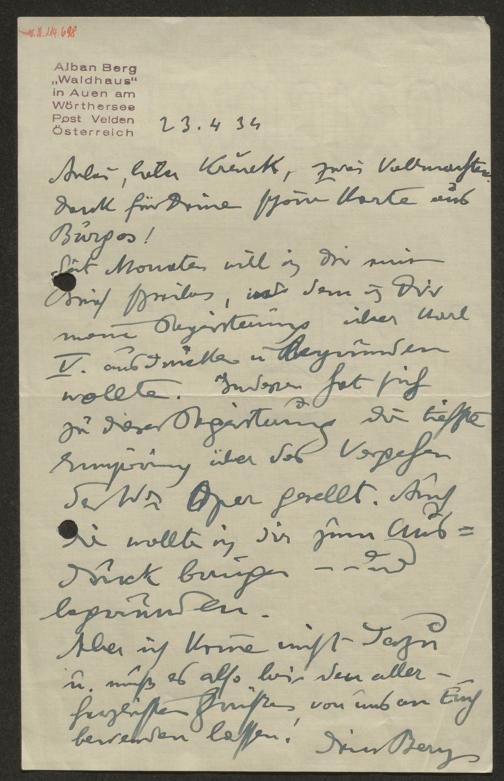 Alban Berg
„Waldhaus"
in Auen am
Wörthersee
Post Velden
Österreich
23.4.34
lieber Křenek, zwei Vollmachten.
Dank für Deine schöne Karte aus
Burgos!
Seit Monaten will ich Dir einen
Brief schreiben, in dem ich Dir
meine Begeisterung über Karl
V. ausdrücken u begründen
wollte. Indessen hat sich
zu dieser Begeisterung die tiefste
Empörung über das Vorgehen
der Wr Oper gesellt. Auch
die wollte ich Dir zum Aus=
druck bringen – – und
begründen.
Aber ich komme nicht dazu
u. muß es also bei den aller-
herzlichsten Grüßen von uns an Euch
bewenden lassen! Dein Berg